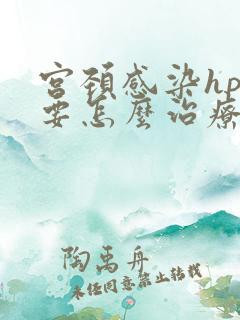 宫颈感染hp
要怎麼治療
陶禹舟
未经同意禁止转载